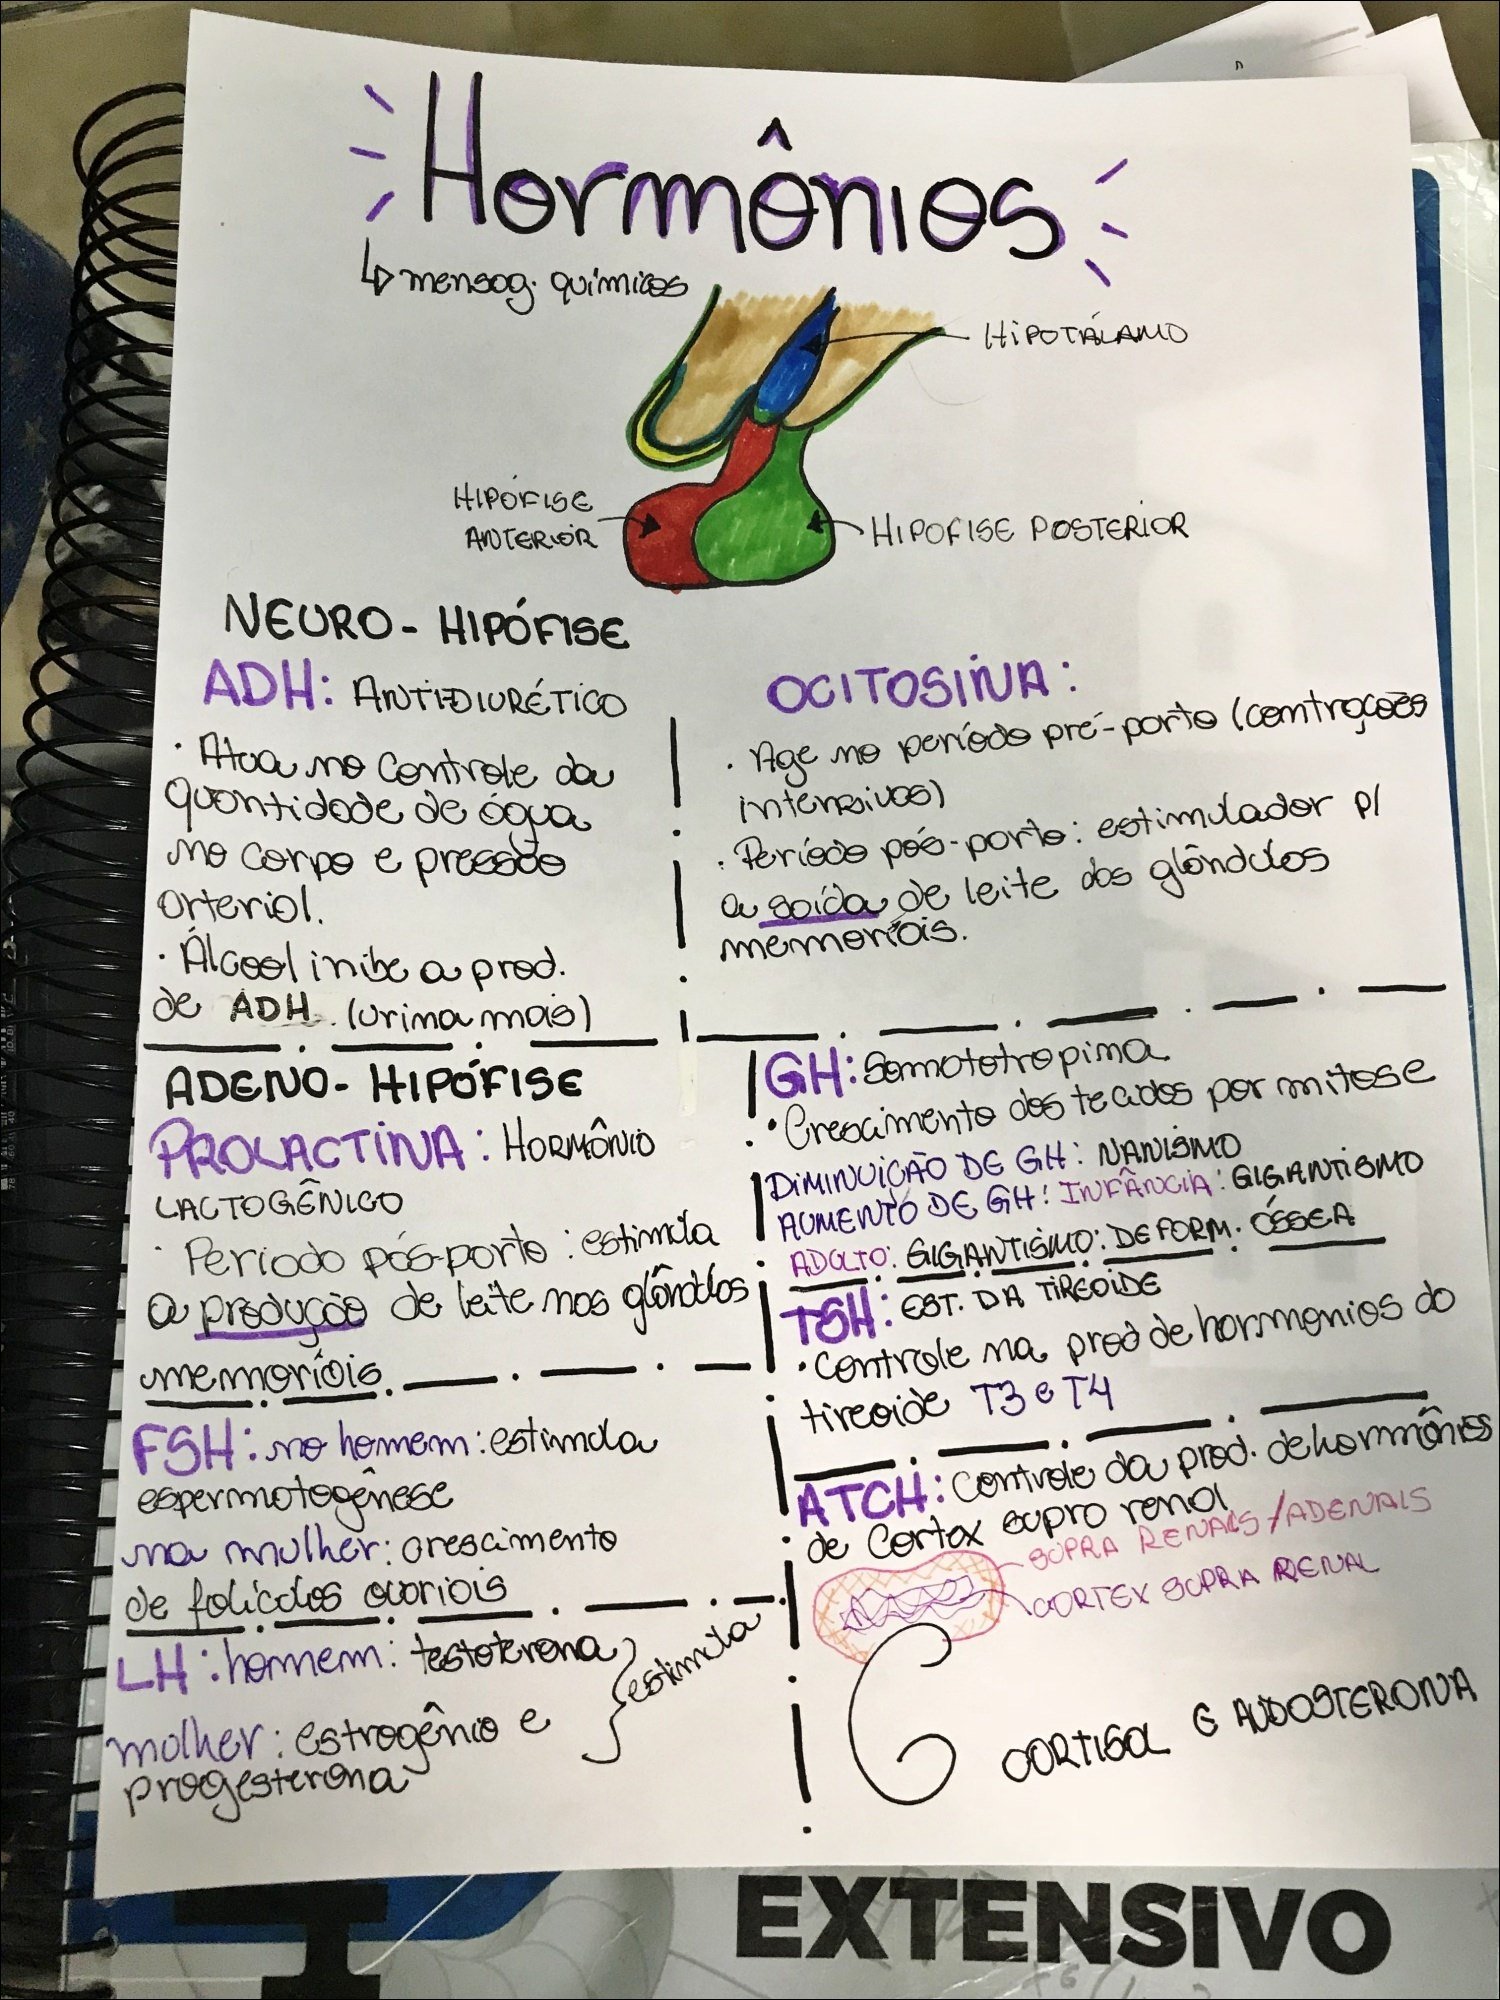 Hormônios
↳ mensag. químicos
HIPOTÁLAMO
HIPÓFISE
ANTERIOR
HIPOFISE POSTERIOR
NEURO - HIPÓFISE
ADH: ANTI-DIURÉTICO
· Atua no controle da
quantidade de água
no corpo e pressão
arterial.
· Álcool inibe a prod.
de ADH (urina mais)
OCITOSINA:
· Age no período pré-parto (contrações
intensivas)
· Período pós-parto: estimulador p/
a saída de leite das glândulas
memoriais.
ADENO- HIPÓFISE
PROLACTINA: HORMÔNIO
LACTOGÊNICO
· Período pós-parto: estimula
a produção de leite nas glândulas
memoriais.
FSH: no homem: estimula
espermatogênese
na mulher: crescimento
de folículos ovariais
LH: homem: testoterona
mulher: estrogênio e
progesterona
estimula
GH: Somototropina
· Crescimento dos tecidos por mitose
DIMINUIÇÃO DE GH: NANISMO
AUMENTO DE GH: INFÂNCIA: GIGANTISMO
ADULTO: GIGANTISMO: DEFORM. ÓSSEA
TSH: EST. DA TIREOIDE
· Controle na prod de hormonios do
tireoide T3 e T4
ATCH: Controle da prod. de hormônios
de Cortex supra renal
SUPRA RENAIS/ADENAIS
CORTEX SUPRA RENAL
CORTISOL E AUDOSTERONA
EXTENSIVO